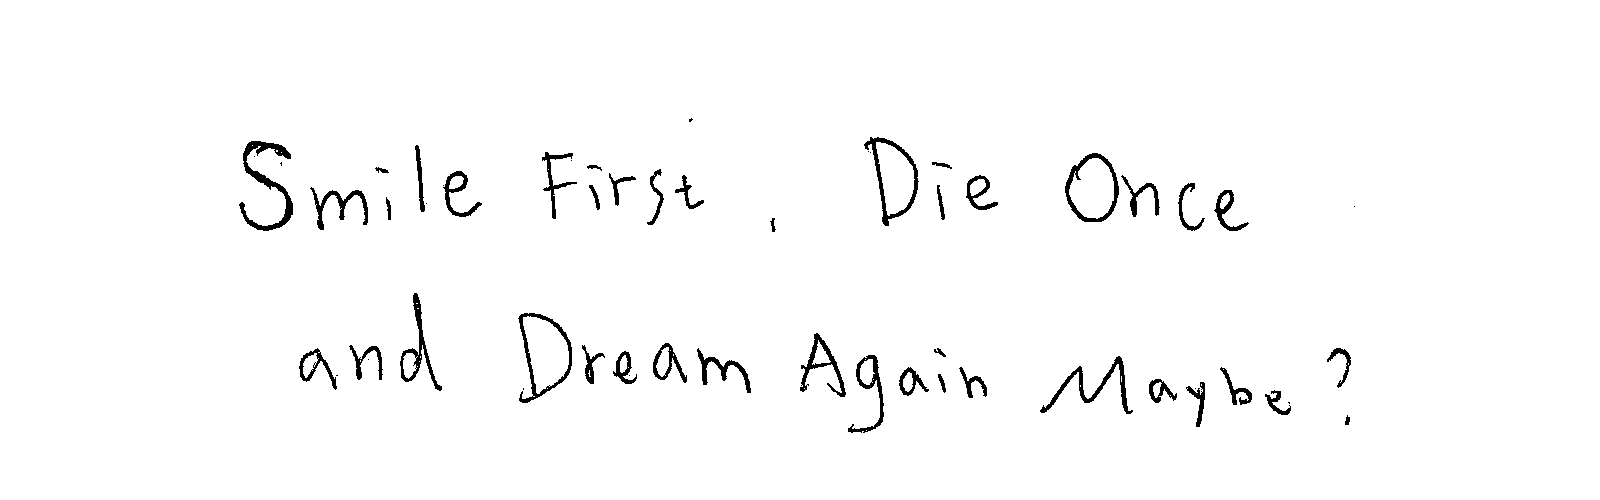 Smile First, Die Once
and Dream Again Maybe?